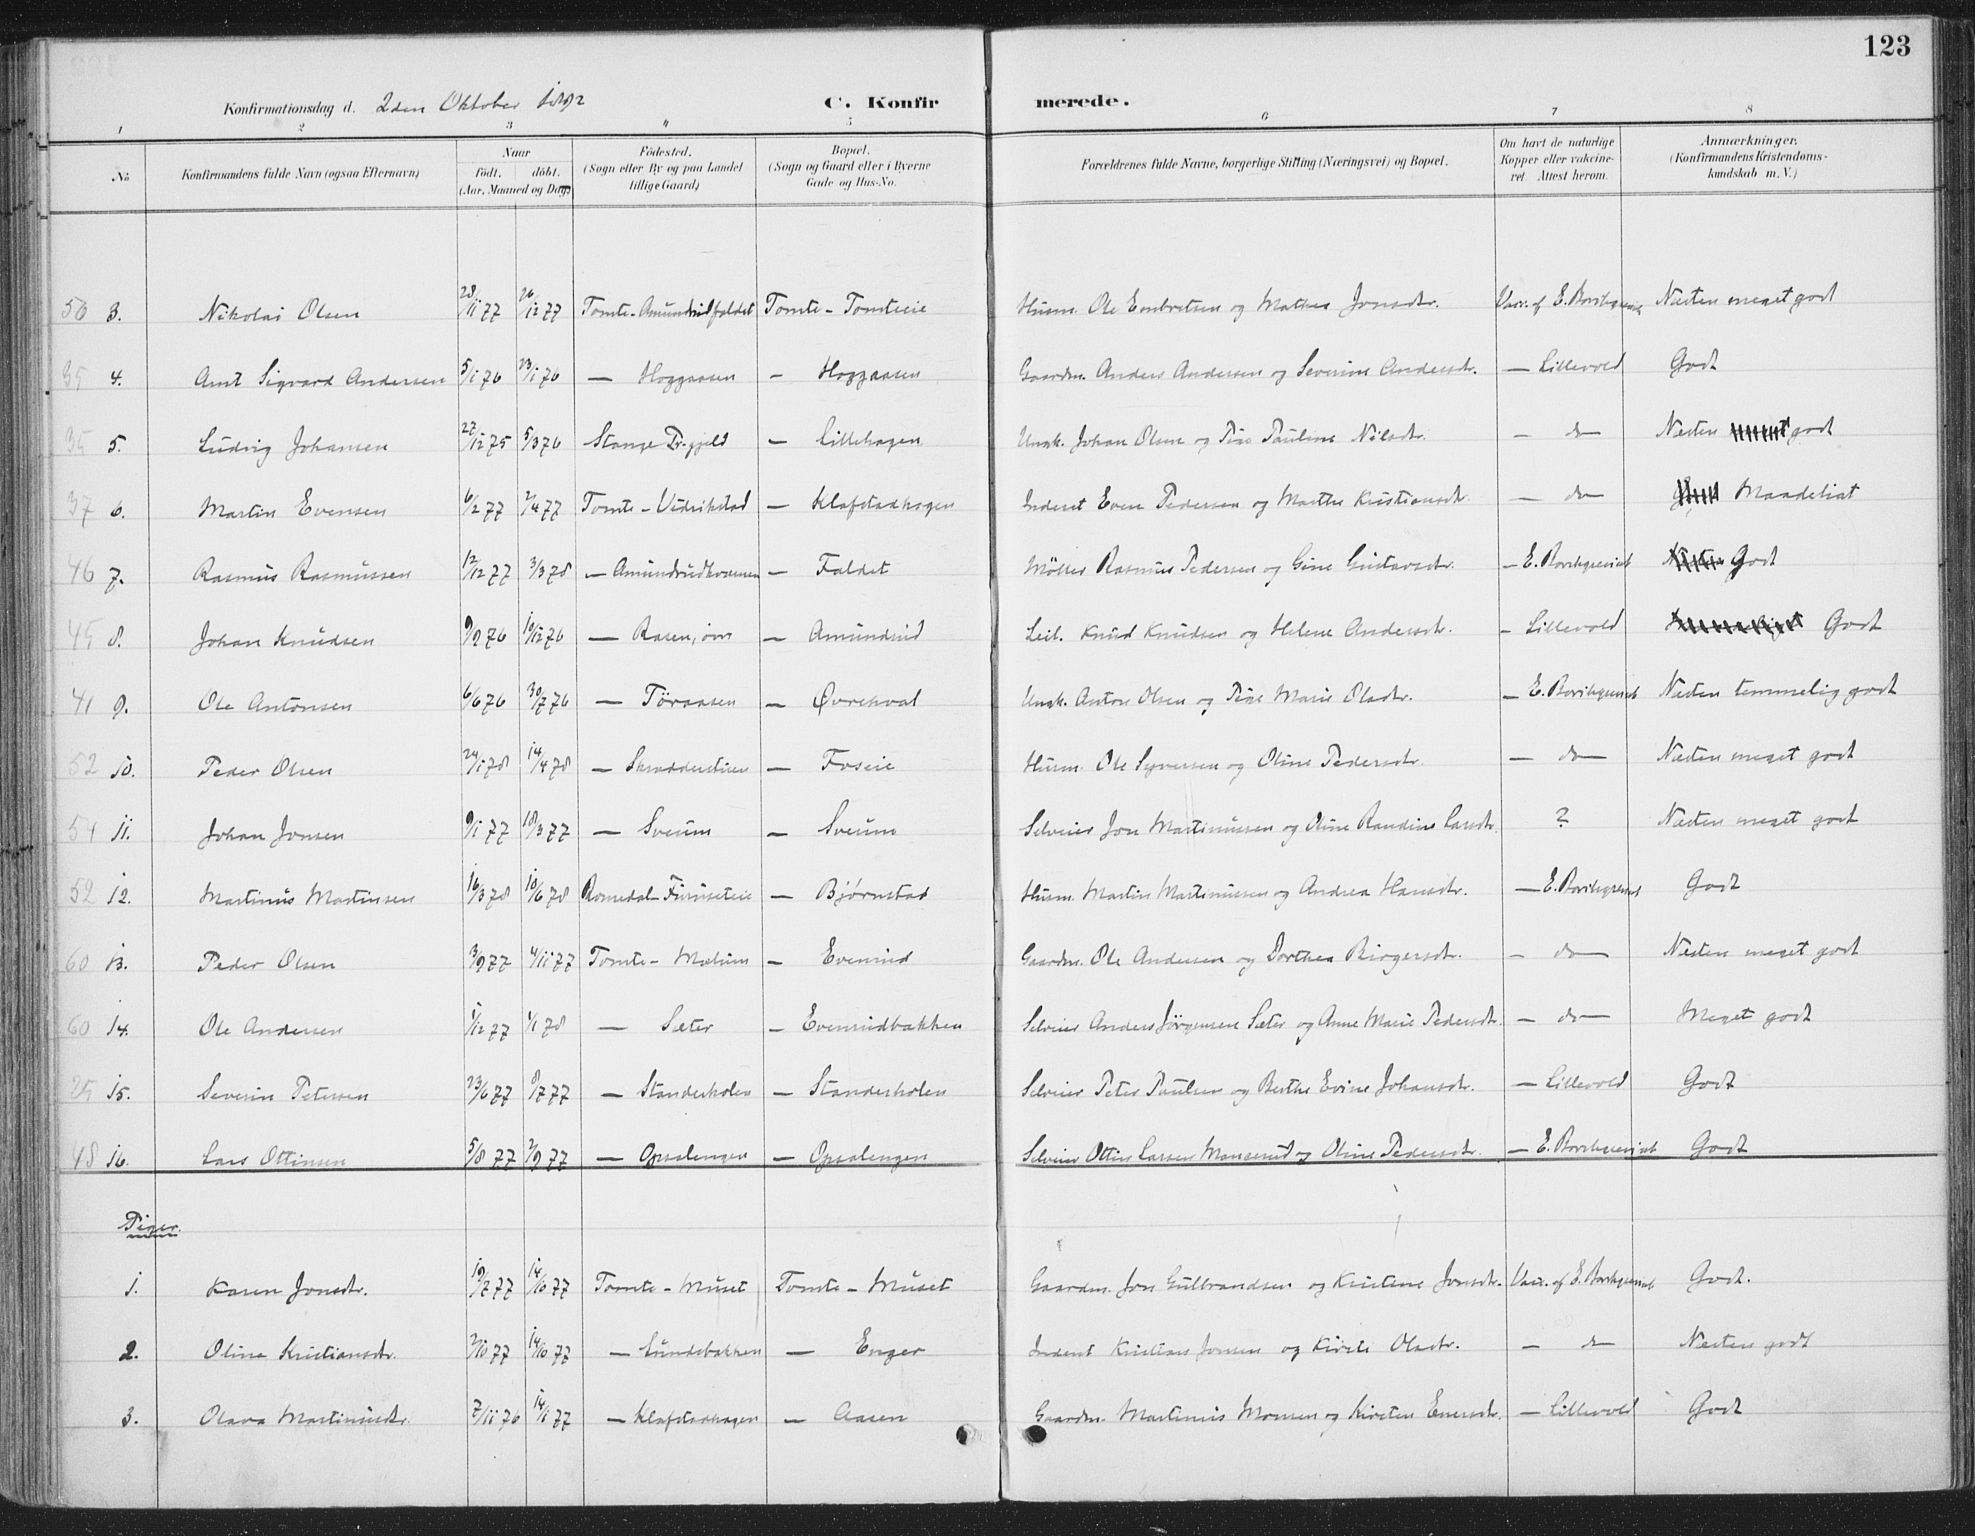 123
Konfirmationsdag d. 2den Oktober 1892 C. Konfirmerede.
1 2 3 4 5 6 7 8
No Konfirmandens fulde Navn (ogsaa Efternavn) Naar födt. döbt. (Aar, Maaned og Dag) Födested. (Sogn eller By og paa Landet tillige Gaard) Bopæl. (Sogn og Gaard eller i Byerne Gade og Hus-No. Forældrenes fulde Navne, borgerlige Stilling (Næringsvei) og Bopæl. Om havt de naturlige Kopper eller vakcineret. Attest herom. Anmærkninger. (Konfirmandens Kristendomskundskab m. V.)
56 3. Nikolai Olsen 28/11 77 26/12 77 Tomte - Amundrudfaldet Tomte - Tomteeie Husm. Ole Embretsen og Mathea Jonsdtr. Vacc. af E. Borchgrevink Næsten meget godt
35 4. Amt Sigvard Andersen 5/1 76 23/1 76 — Hoggaasen — Hoggaasen Gaardm. Anders Andersen og Severine Andersdtr. — Lillevold Godt
35 5. Ludvig Johansen 27/12 75 5/3 76 Stange Pr.gjeld — Lillehagen Ungk. Johan Olsen og Pige Pauline Nilsdtr. — do — Næsten godt
37 6. Martin Evensen 6/2 77 2/4 77 Tomte - Vidrikstad — Klafstadhagen Inderst Even Pedersen og Marthe Kristiansdtr. — do — Maadeligt
46 7. Rasmus Rasmussen 12/12 77 3/3 78 — Amundrudkværnen — Faldet Möller Rasmus Pedersen og Gine Gustavsdtr. — E. Borchgrevink Godt
45 8. Johan Knudsen 9/9 76 10/12 76 — Rasen, övre — Amundrud Leil. Knud Knudsen og Helene Andersdtr. — Lillevold Godt
41 9. Ole Antonsen 6/6 76 30/7 76 — Töraasen — Øvrekval Ungk. Anton Olsen og Pige Marie Olsdtr. — E. Borchgrevink Næsten temmelig godt
52 10. Peder Olsen 24/1 78 14/4 78 — Skrædderstuen — Foseie Husm. Ole Syversen og Oline Pedersdtr. — do — Næsten meget godt
54 11. Johan Jonsen 9/1 77 18/3 77 — Sveum — Sveum Selveier Jon Martinussen og Oline Randine Larsdtr. ? Næsten meget godt
52 12. Martinus Martinsen 16/3 78 10/6 78 Romedal - Furuseteie — Bjørnstad Husm. Martin Martinussen og Andrea Hansdtr. — E. Borchgrevink Godt
60 13. Peder Olsen 3/9 77 4/11 77 Tomte - Mælum — Evenrud Gaardm. Ole Andersen og Dorthea Birgersdtr. — do — Næsten meget godt
60 14. Ole Andersen 1/12 77 1/1 78 — Sæter — Evenrudbakken Selveier Anders Jörgensen Sæter og Anne Marie Pedersdtr. — do — Meget godt
25 15. Severin Petersen 23/6 77 8/7 77 — Standerholen — Standerholen Selveier Peter Paulsen og Berthe Evine Johansdtr. — Lillevold Godt
48 16. Lars Ottinsen 5/8 77 2/9 77 — Opsalengen — Opsalengen Selveier Ottin Larsen Manserud og Oline Pedersdtr. — E. Borchgrevink Godt
Piger.
1. Karen Jonsdtr. 19/7 77 14/10 77 Tomte - Muset Tomte - Muset Gaardm. Jon Gulbrandsen og Kristine Jonsdtr. Vacc. af E. Borchgrevink Godt.
2. Oline Kristiansdtr. 2/10 77 14/10 77 — Lundsbakken — Enger Inderst Kristian Jonsen og Kirsti Olsdtr. — do Næsten godt
3. Olava Martinusdtr. 7/11 76 14/1 77 — Klafstadhagen — Aasen Gaardm. Martinus Monsen og Kirsten Enersdtr. — Lillevold Godt